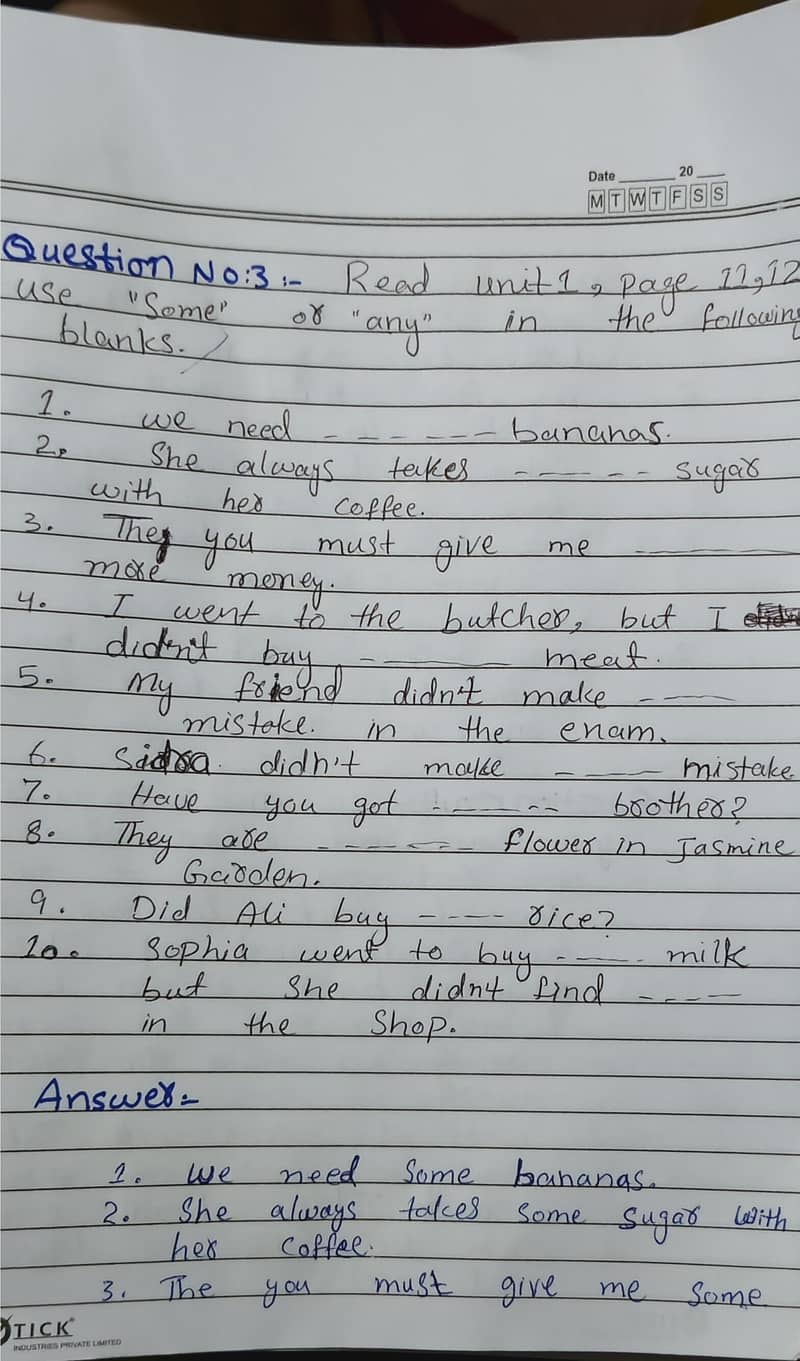 Date ______ 20 ___
M T W T F S S
Question No:3:- Read unit 1, page 11,12
use "Some" or "any" in the following
blanks.
1. we need - - - - - - bananas.
2. She always takes - - - - - sugar
with her coffee.
3. They you must give me ______
more money.
4. I went to the butcher, but I
didn't buy - ______ meat.
5. My friend didn't make - - ___
mistake. in the enam.
6. Sidra. didn't make - - ___ mistake
7. Have you got - - - - - - brother?
8. They are - - - - - - flower in Jasmine
Garden.
9. Did Ali buy - - - - rice?
10. Sophia went to buy - - - - milk
but she didn't find - - - -
in the Shop.
Answer:-
1. We need Some bananas.
2. She always takes some sugar with
her coffee.
3. The you must give me some
TICK
INDUSTRIES PRIVATE LIMITED